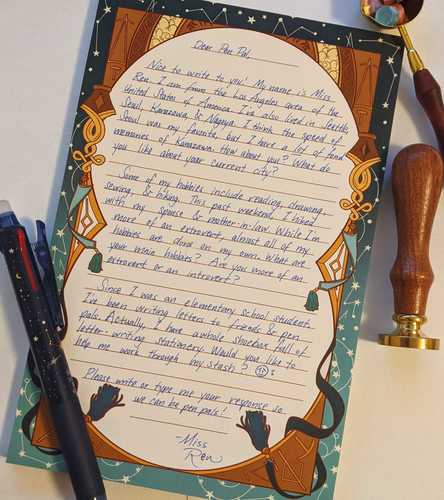 Dear Pen Pal,
Nice to write to you! My name is Miss
Ren. I am from the Los Angeles area of the
United States of America. I've also lived in Seattle,
Seoul, Kanazawa, & Nagoya. I think the speed of
Seoul was my favorite, but I have a lot of fond
memories of Kanazawa. How about you? What do
you like about your current city?
Some of my hobbies include reading, drawing,
sewing, & hiking. This past weekend, I hiked
with my spouse & mother-in-law. While I'm
more of an extrovert, almost all of my
hobbies are done on my own. What are
your main hobbies? Are you more of an
extrovert or an introvert?
Since I was an elementary school student,
I've been writing letters to friends & pen
pals. Actually, I have a whole shoebox full of
letter-writing stationery. Would you like to
help me work through my stash?
Please write or type me your response so
we can be pen pals!
-Miss
Ren